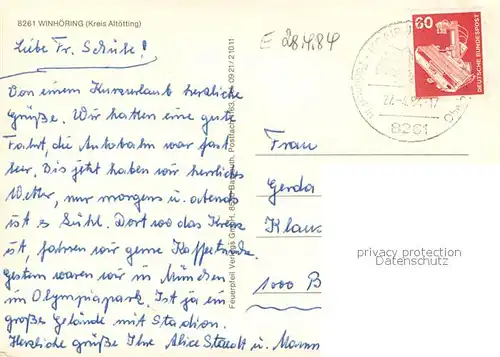 8261 WINHÖRING (Kreis Altötting)
Liebe Fr. Schulze!
E 28.4.84
60
DEUTSCHE BUNDESPOST
27.-4.84-17
8261
Von einem Kurzurlaub herzliche
Grüße. Wir hatten eine gute
Fahrt, die Autobahn war fast
leer. Bis jetzt haben wir herrliches
Wetter, nur morgens u. abends
ist es kühl. Dort wo das Kreuz
ist, fahren wir gerne Kaffeetrinken.
Gestern waren wir in München
im Olympiapark. Ist ja ein
großes Gelände mit Stadion.
Herzliche grüße Ihre Alice u. Mann
Feuerpfeil Verlags GmbH, 8580 Bayreuth, Postfach 163, 0921/21011
Frau
Gerda
Klaus
1000 B
privacy protection
Datenschutz